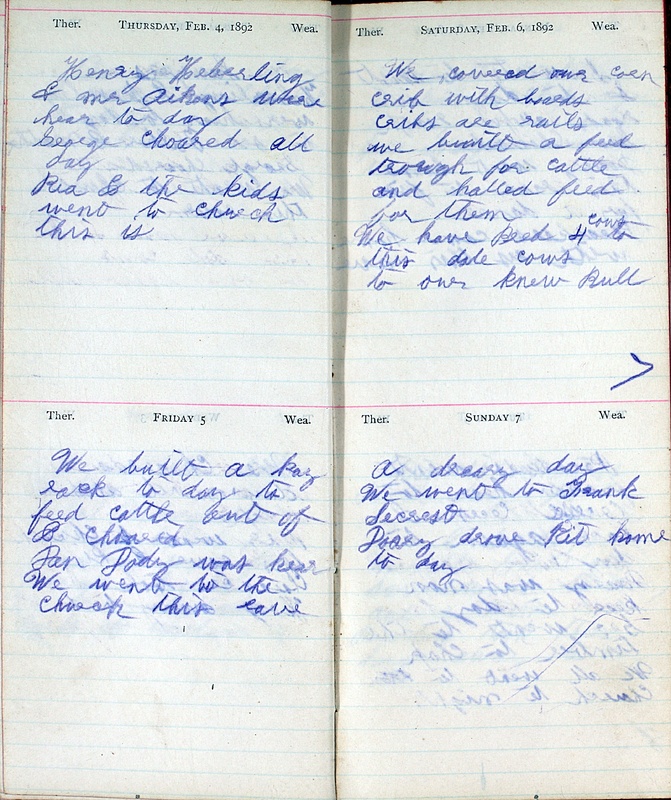 Ther. THURSDAY, FEB. 4, 1892 Wea.
Henry Heberling
& mr Aikens were
hear to day
George choared all
day
Ria & the kids
went to chuech
this is
Ther. FRIDAY 5 Wea.
We built a hay
rack to day to
feed cattle out of
& choared
Dan Dody was hear
We went to the
chuech this eave
Ther. SATURDAY, FEB. 6, 1892 Wea.
We covered our coen
crib with boards
cribs are rails
we buuilt a feed
trough for cattle
and halled feed
for them
We have Breed 4 cows to
this date cows
to our knew Bull
Ther. SUNDAY 7 Wea.
A dreary day
We went to Frank
Secrest
Doary drove Kit home
to day